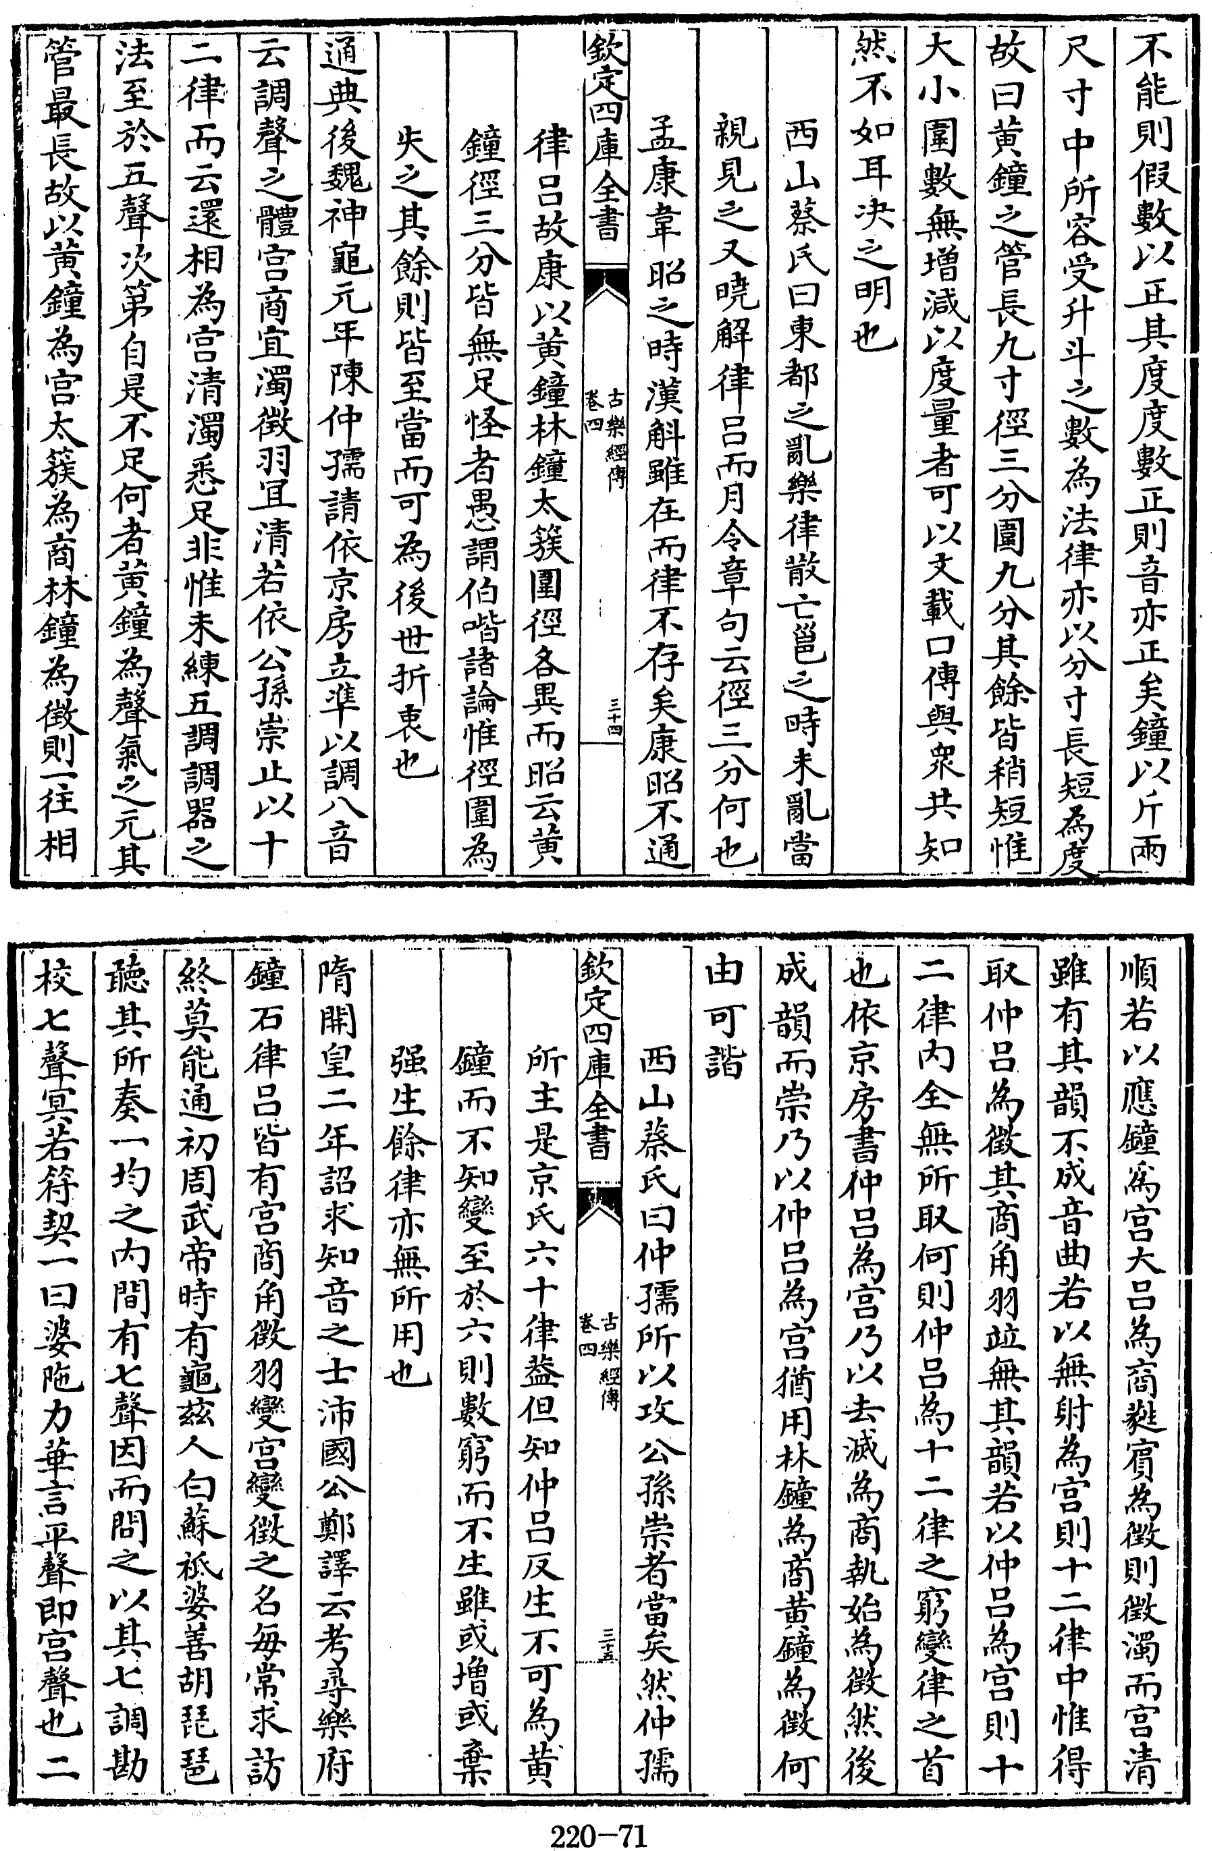 不能則假數以正其度度數正則音亦正矣鐘以斤兩
尺寸中所容受升斗之數為法律亦以分寸長短為度
故曰黃鐘之管長九寸徑三分圍九分其餘皆稍短惟
大小圍數無增減以度量者可以文載口傳與衆共知
然不如耳決之明也
西山蔡氏曰東都之亂樂律散亡邕之時未亂當
親見之又曉解律呂而月令章句云徑三分何也
孟康韋昭之時漢斛雖在而律不存矣康昭不通
欽定四庫全書
古樂經傳
卷四
三十四
律呂故康以黃鐘林鐘太簇圍徑各異而昭云黃
鐘徑三分皆無足怪者愚謂伯喈諸論惟徑圍為
失之其餘則皆至當而可為後世折衷也
通典後魏神龜元年陳仲孺請依京房立準以調八音
云調聲之體宮商宜濁徵羽宜清若依公孫崇止以十
二律而云還相為宮清濁悉足非惟未練五調調器之
法至於五聲次第自是不足何者黃鐘為聲氣之元其
管最長故以黃鐘為宮太簇為商林鐘為徵則一往相
順若以應鐘為宮大呂為商蕤賓為徵則徵濁而宮清
雖有其韻不成音曲若以無射為宮則十二律中惟得
取仲呂為徵其商角羽竝無其韻若以仲呂為宮則十
二律內全無所取何則仲呂為十二律之窮變律之首
也依京房書仲呂為宮乃以去滅為商執始為徵然後
成韻而崇乃以仲呂為宮猶用林鐘為商黃鐘為徵何
由可諧
西山蔡氏曰仲孺所以攻公孫崇者當矣然仲孺
欽定四庫全書
古樂經傳
卷四
三十五
所主是京氏六十律葢但知仲呂反生不可為黃
鐘而不知變至於六則數窮而不生雖或增或棄
强生餘律亦無所用也
隋開皇二年詔求知音之士沛國公鄭譯云考尋樂府
鐘石律呂皆有宮商角徵羽變宮變徵之名每常求訪
終莫能通初周武帝時有龜兹人白蘇祗婆善胡琵琶
聽其所奏一均之內間有七聲因而問之以其七調勘
校七聲冥若符契一曰婆陁力華言平聲即宮聲也二
220-71